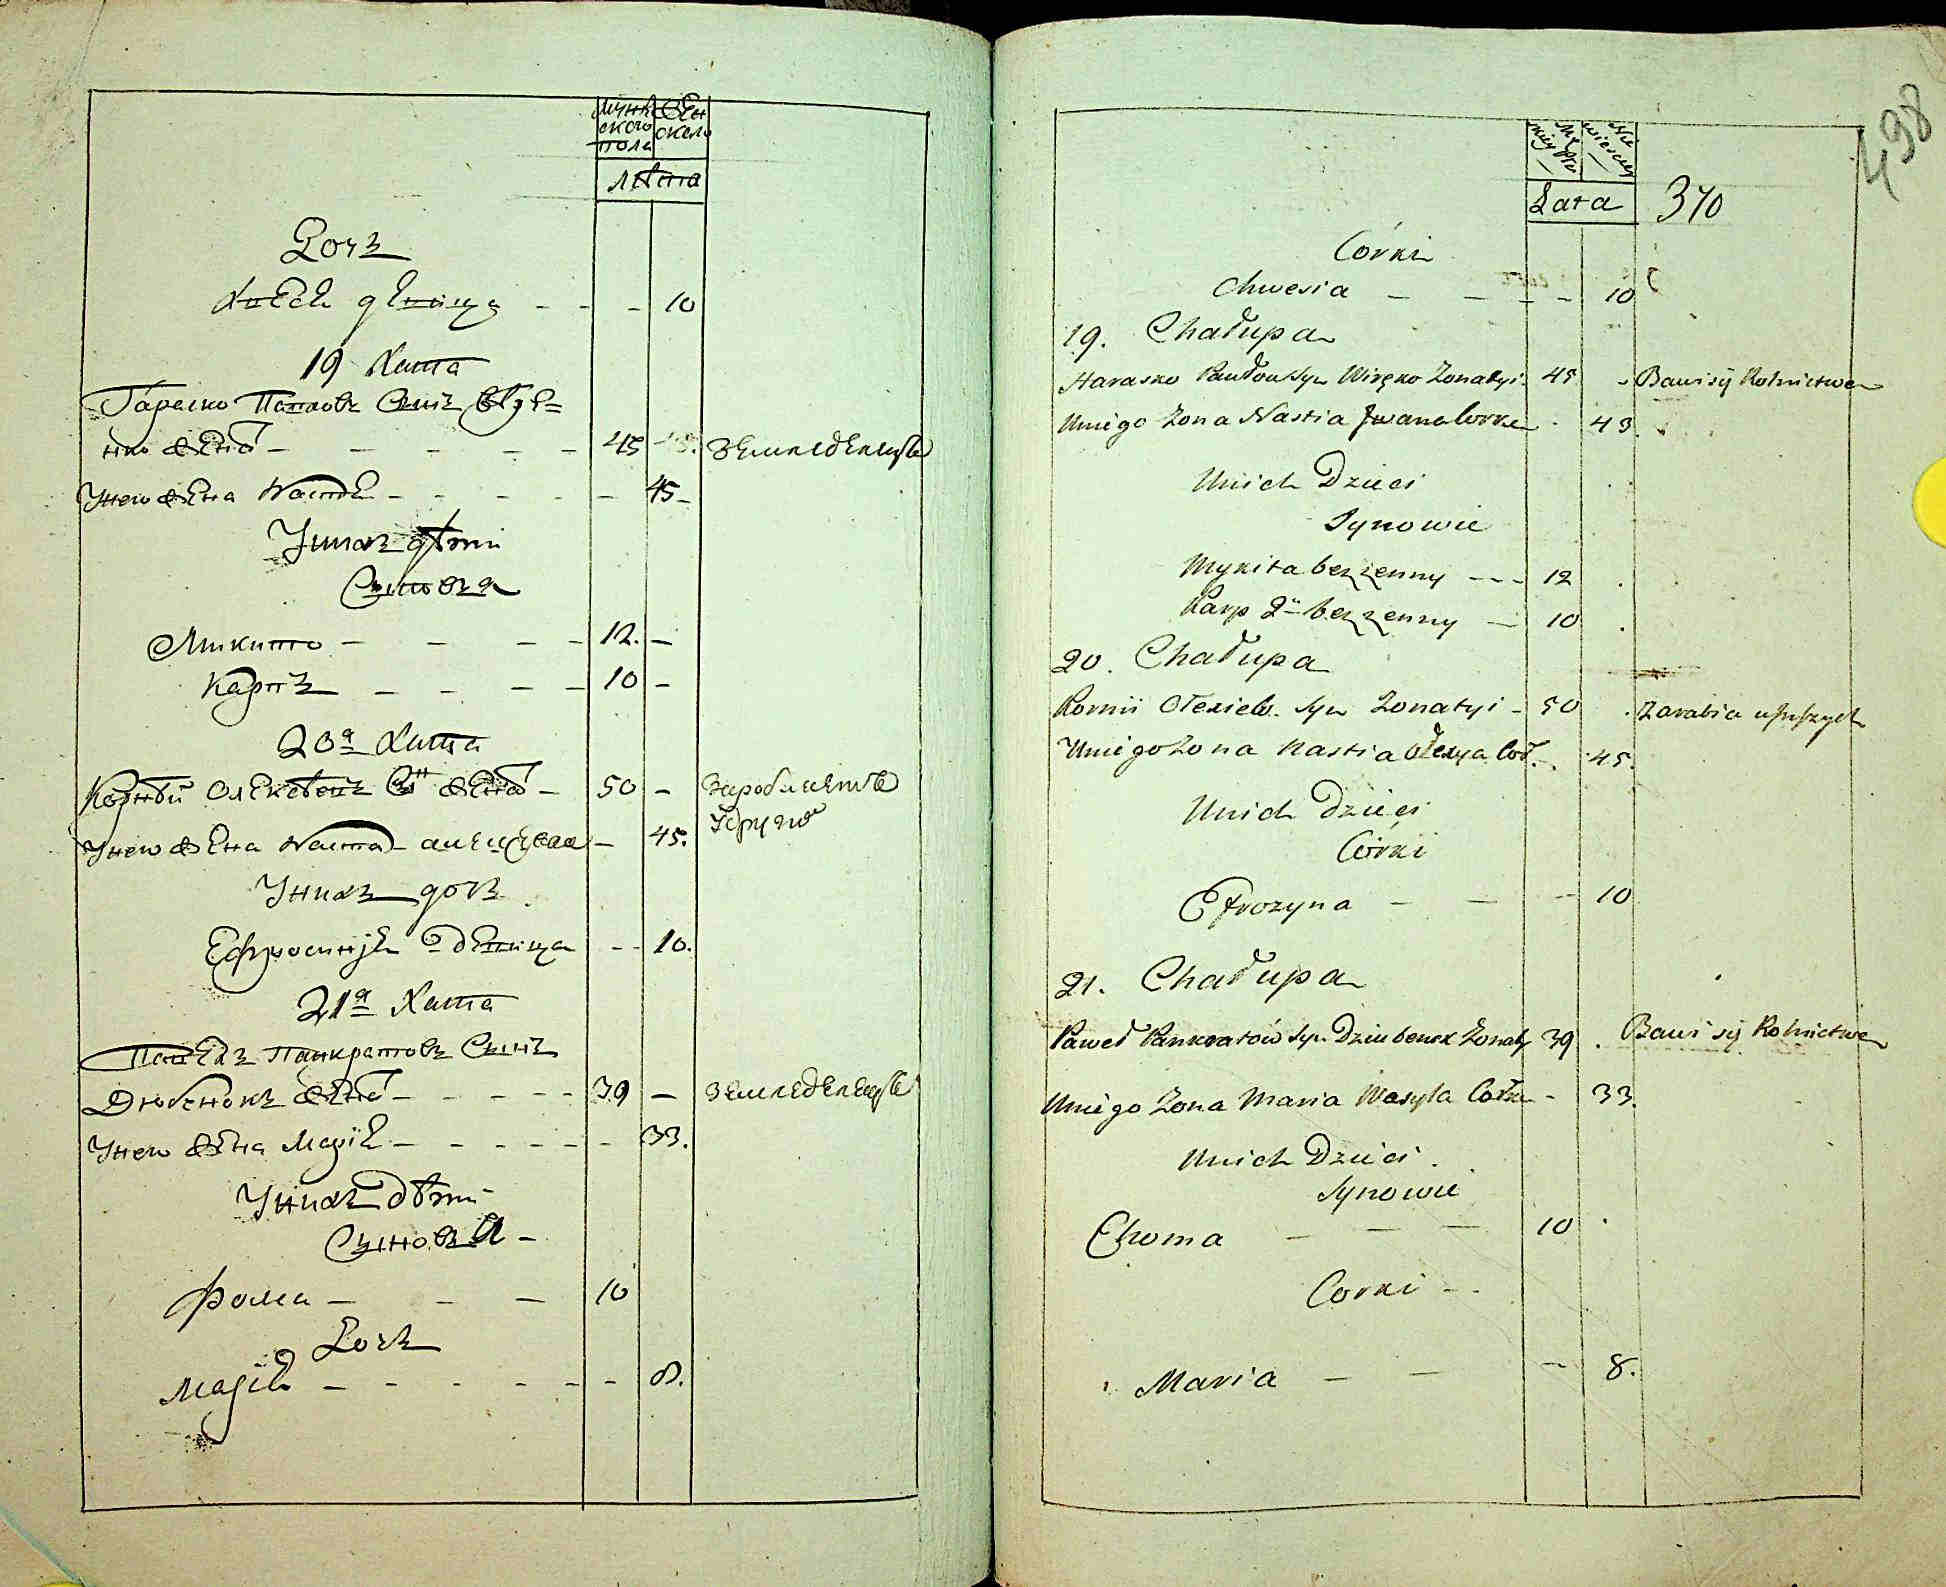 мужескаго пола
женскаго
Лѣта
Дочь
Хвеся дѣвица 10
19 Хата
Гараско Павловъ Сынъ
нко женатъ 45 Земледѣлецъ
У него жена Настя 45
У нихъ дѣти
Сыновья
Микита 12.
Карпъ 10
20я Хата
Корнѣй Олексѣевъ Сынъ женатъ 50
У него жена Настя 45.
У нихъ дочь
Ефросинія дѣвица 10.
21я Хата
Павелъ Панкратовъ Сынъ
Дюбенокъ женатъ 39 Земледѣлецъ
У него жена Марія 33.
У нихъ дѣти
Сыновья
Фома 10
Дочь
Марія 8.
498
Lata 370
Córki
Chwesia 10
19. Chałupa
Harasko Pawłow Syn Wiręko Żonatyi 45 Bawi się Rolnictwem
U niego Żona Nastia Jwana Corka 43
U nich Dzieci
Synowie
Mykita bezżenny 12
Karp 2ii bezżenny 10
20. Chałupa
Kornii Ołexiew Syn Żonatyi 50 Zarabia u
U niego Żona Nastia 45.
U nich Dzieci
Córki
Efrozyna 10
21. Chałupa
Paweł Pankratów Syn Dziubenek Żonaty 39 Bawi się Rolnictwem
U niego Żona Maria Wasyla Córka 33.
U nich Dzieci
Synowie
Choma 10
Corki
Maria 8.